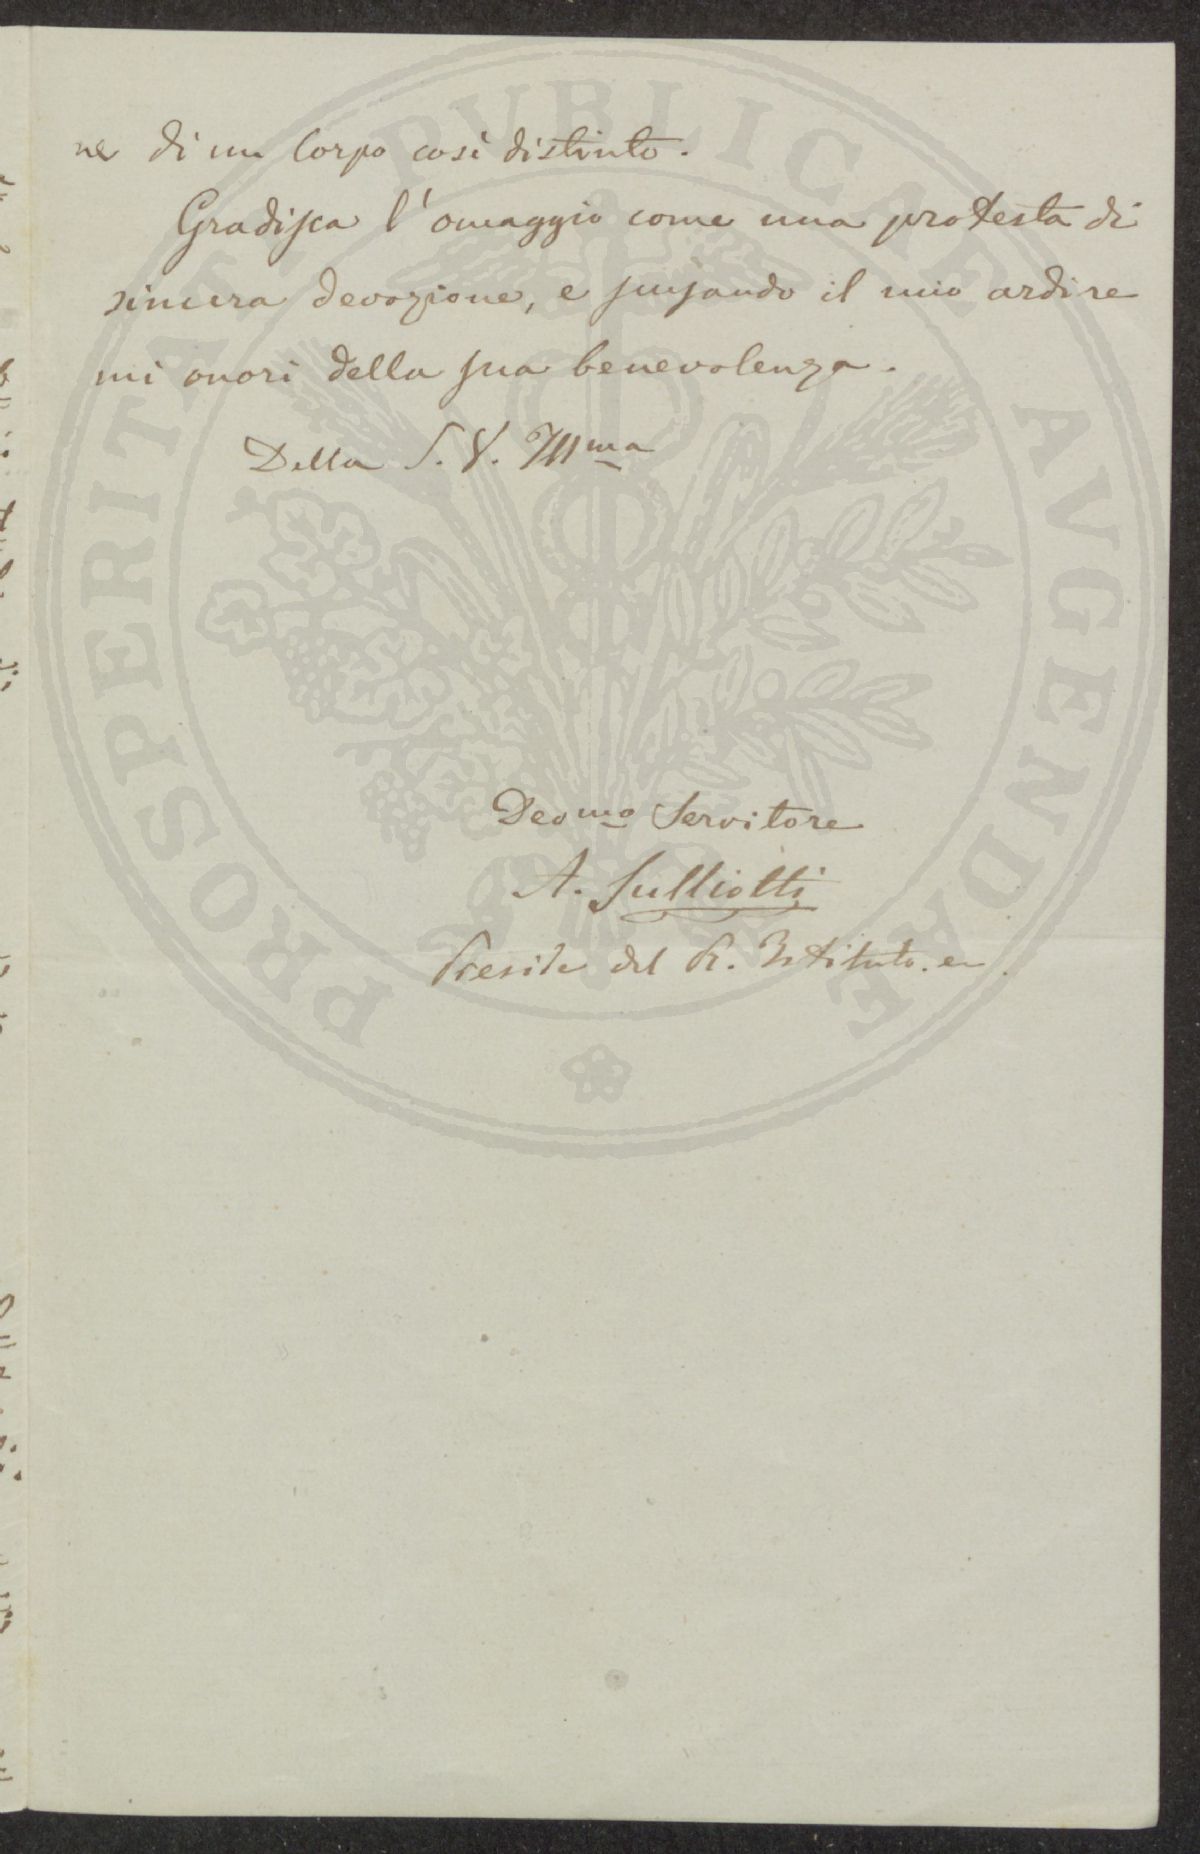 ne di un Corpo così distinto.
Gradisca l'omaggio come una protesta di
sincera devozione, e scusando il mio ardire
mi onori della sua benevolenza.
Della S. V. Illma
Devmo Servitore
A. Sulliotti
Preside del R. Istituto.
PROSPERITATI PVBLICAE AVGENDAE